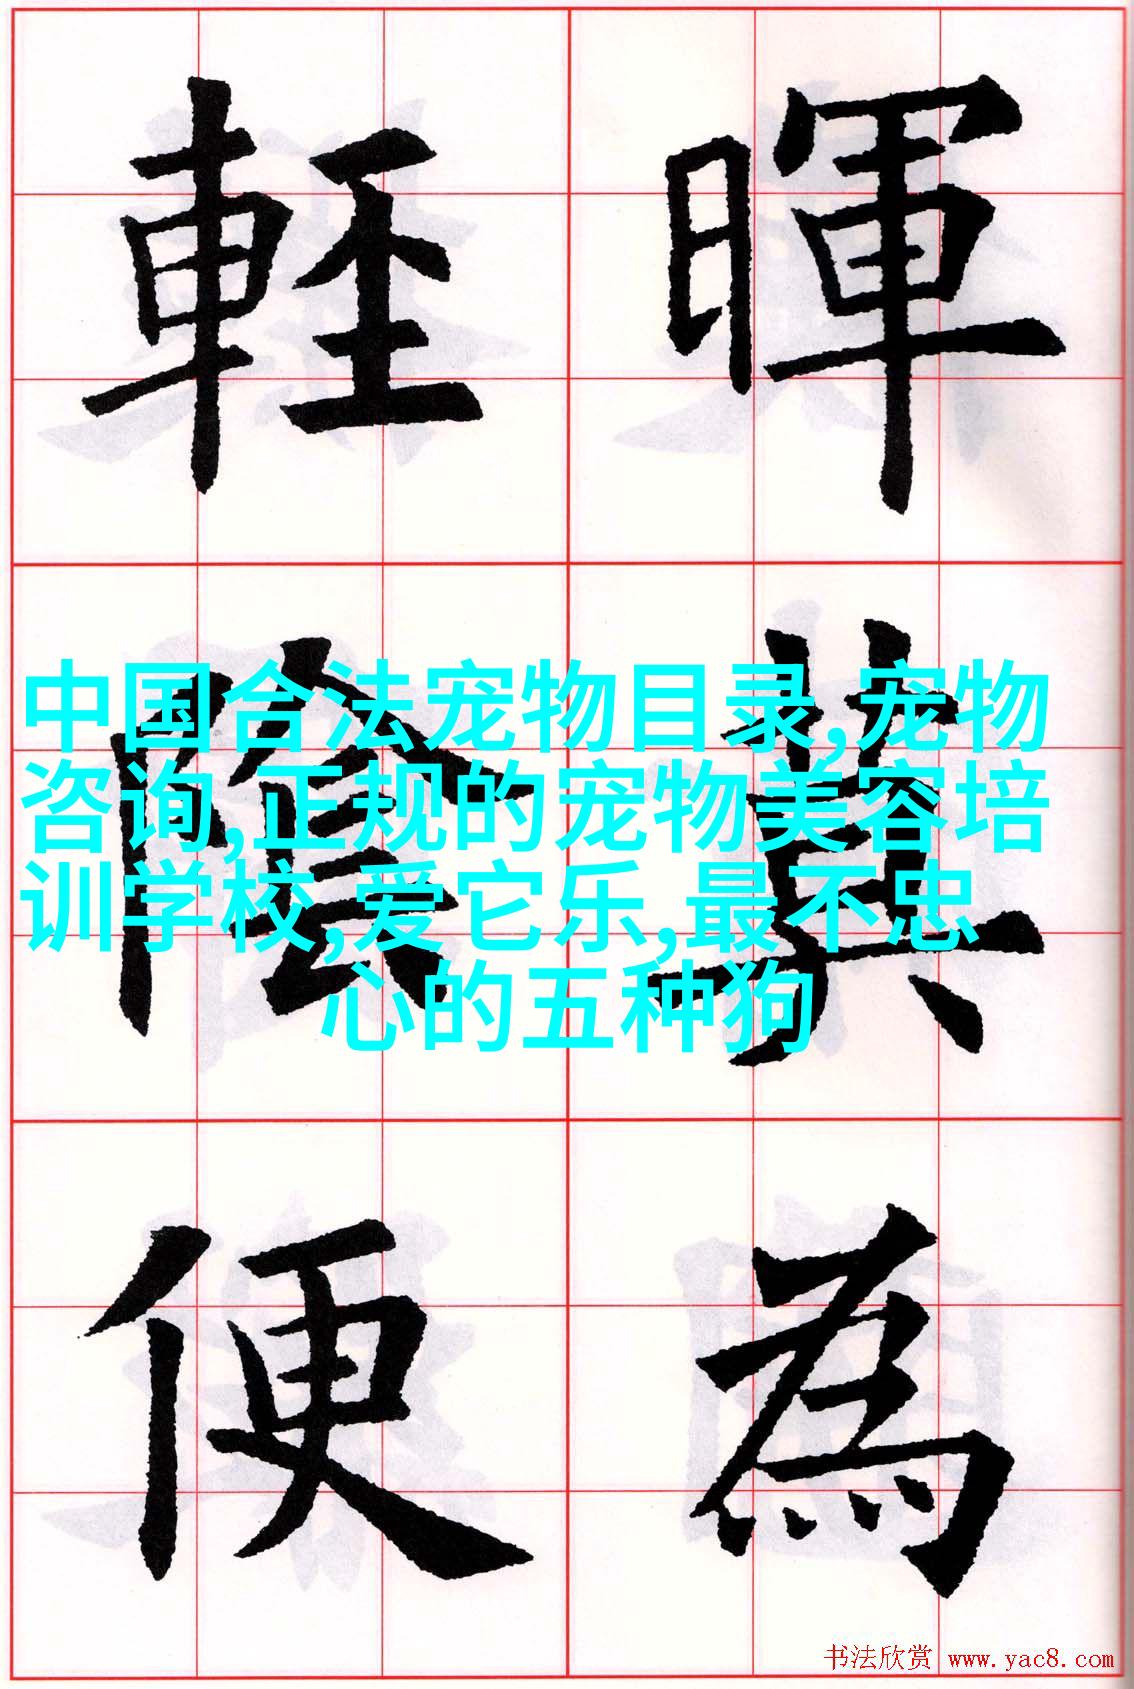 暉莫為
輕陰便
中国合法宠物目录,宠物
咨询,正规的宠物美容培
训学校,爱它乐,最不忠
心的五种狗
书法欣赏 www.yac8.com